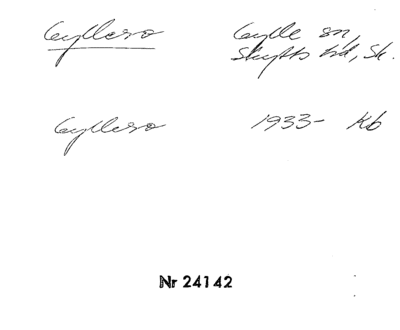 Gyllero Gylle sn,
Skytts hd, Sk.
Gyllero 1933- Kb
Nr 24142